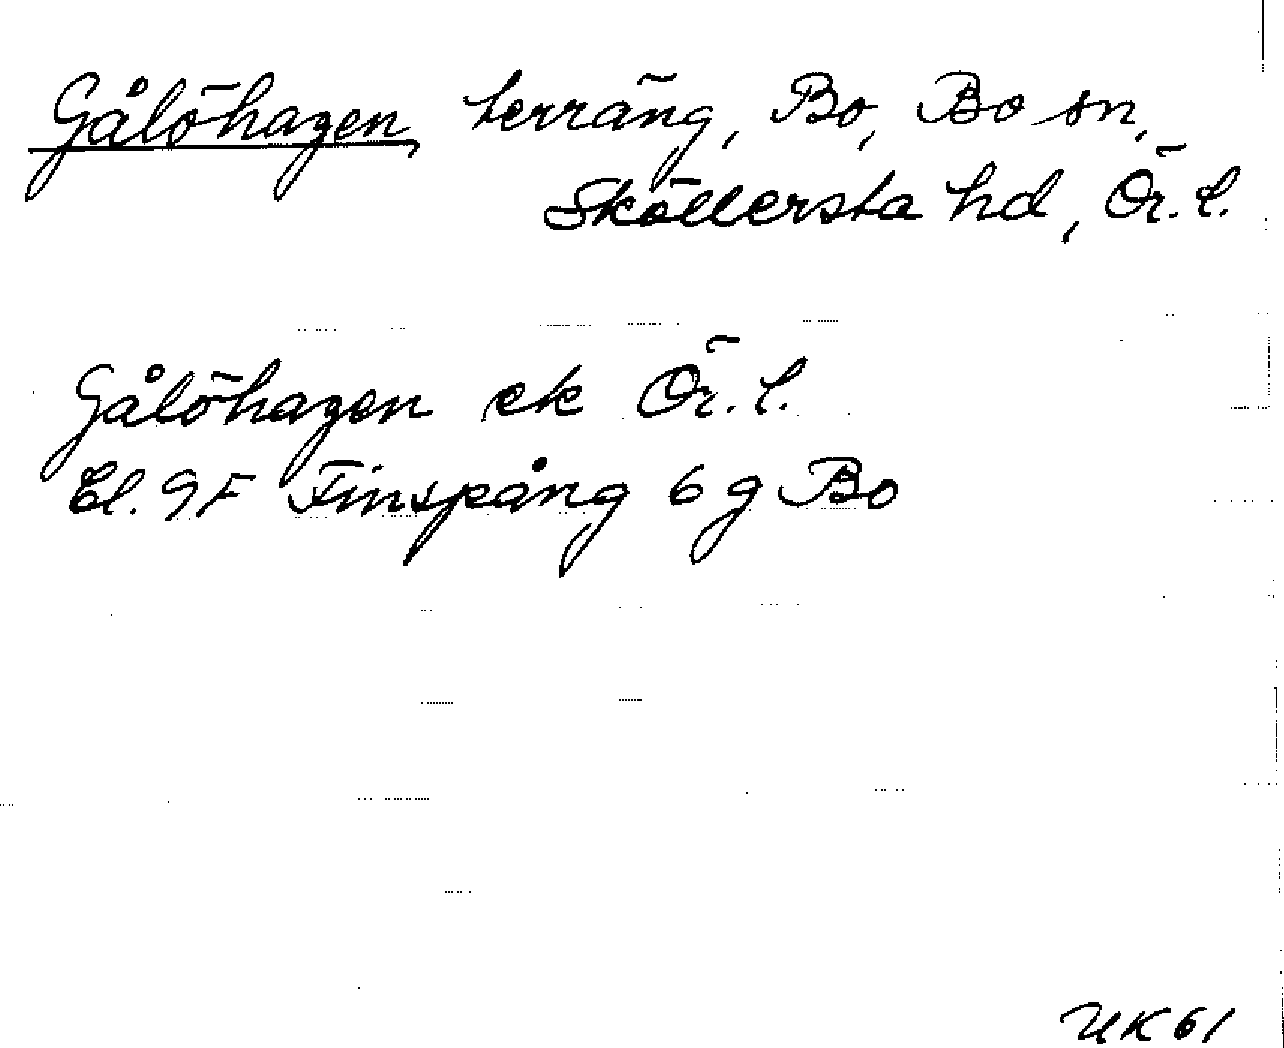 Gålöhagen, terräng, Bo, Bo sn,
Sköllersta hd, Ör. l.
Gålöhagen ek Ör. l.
Bl. 9F Finspång 6 g Bo
UK 61